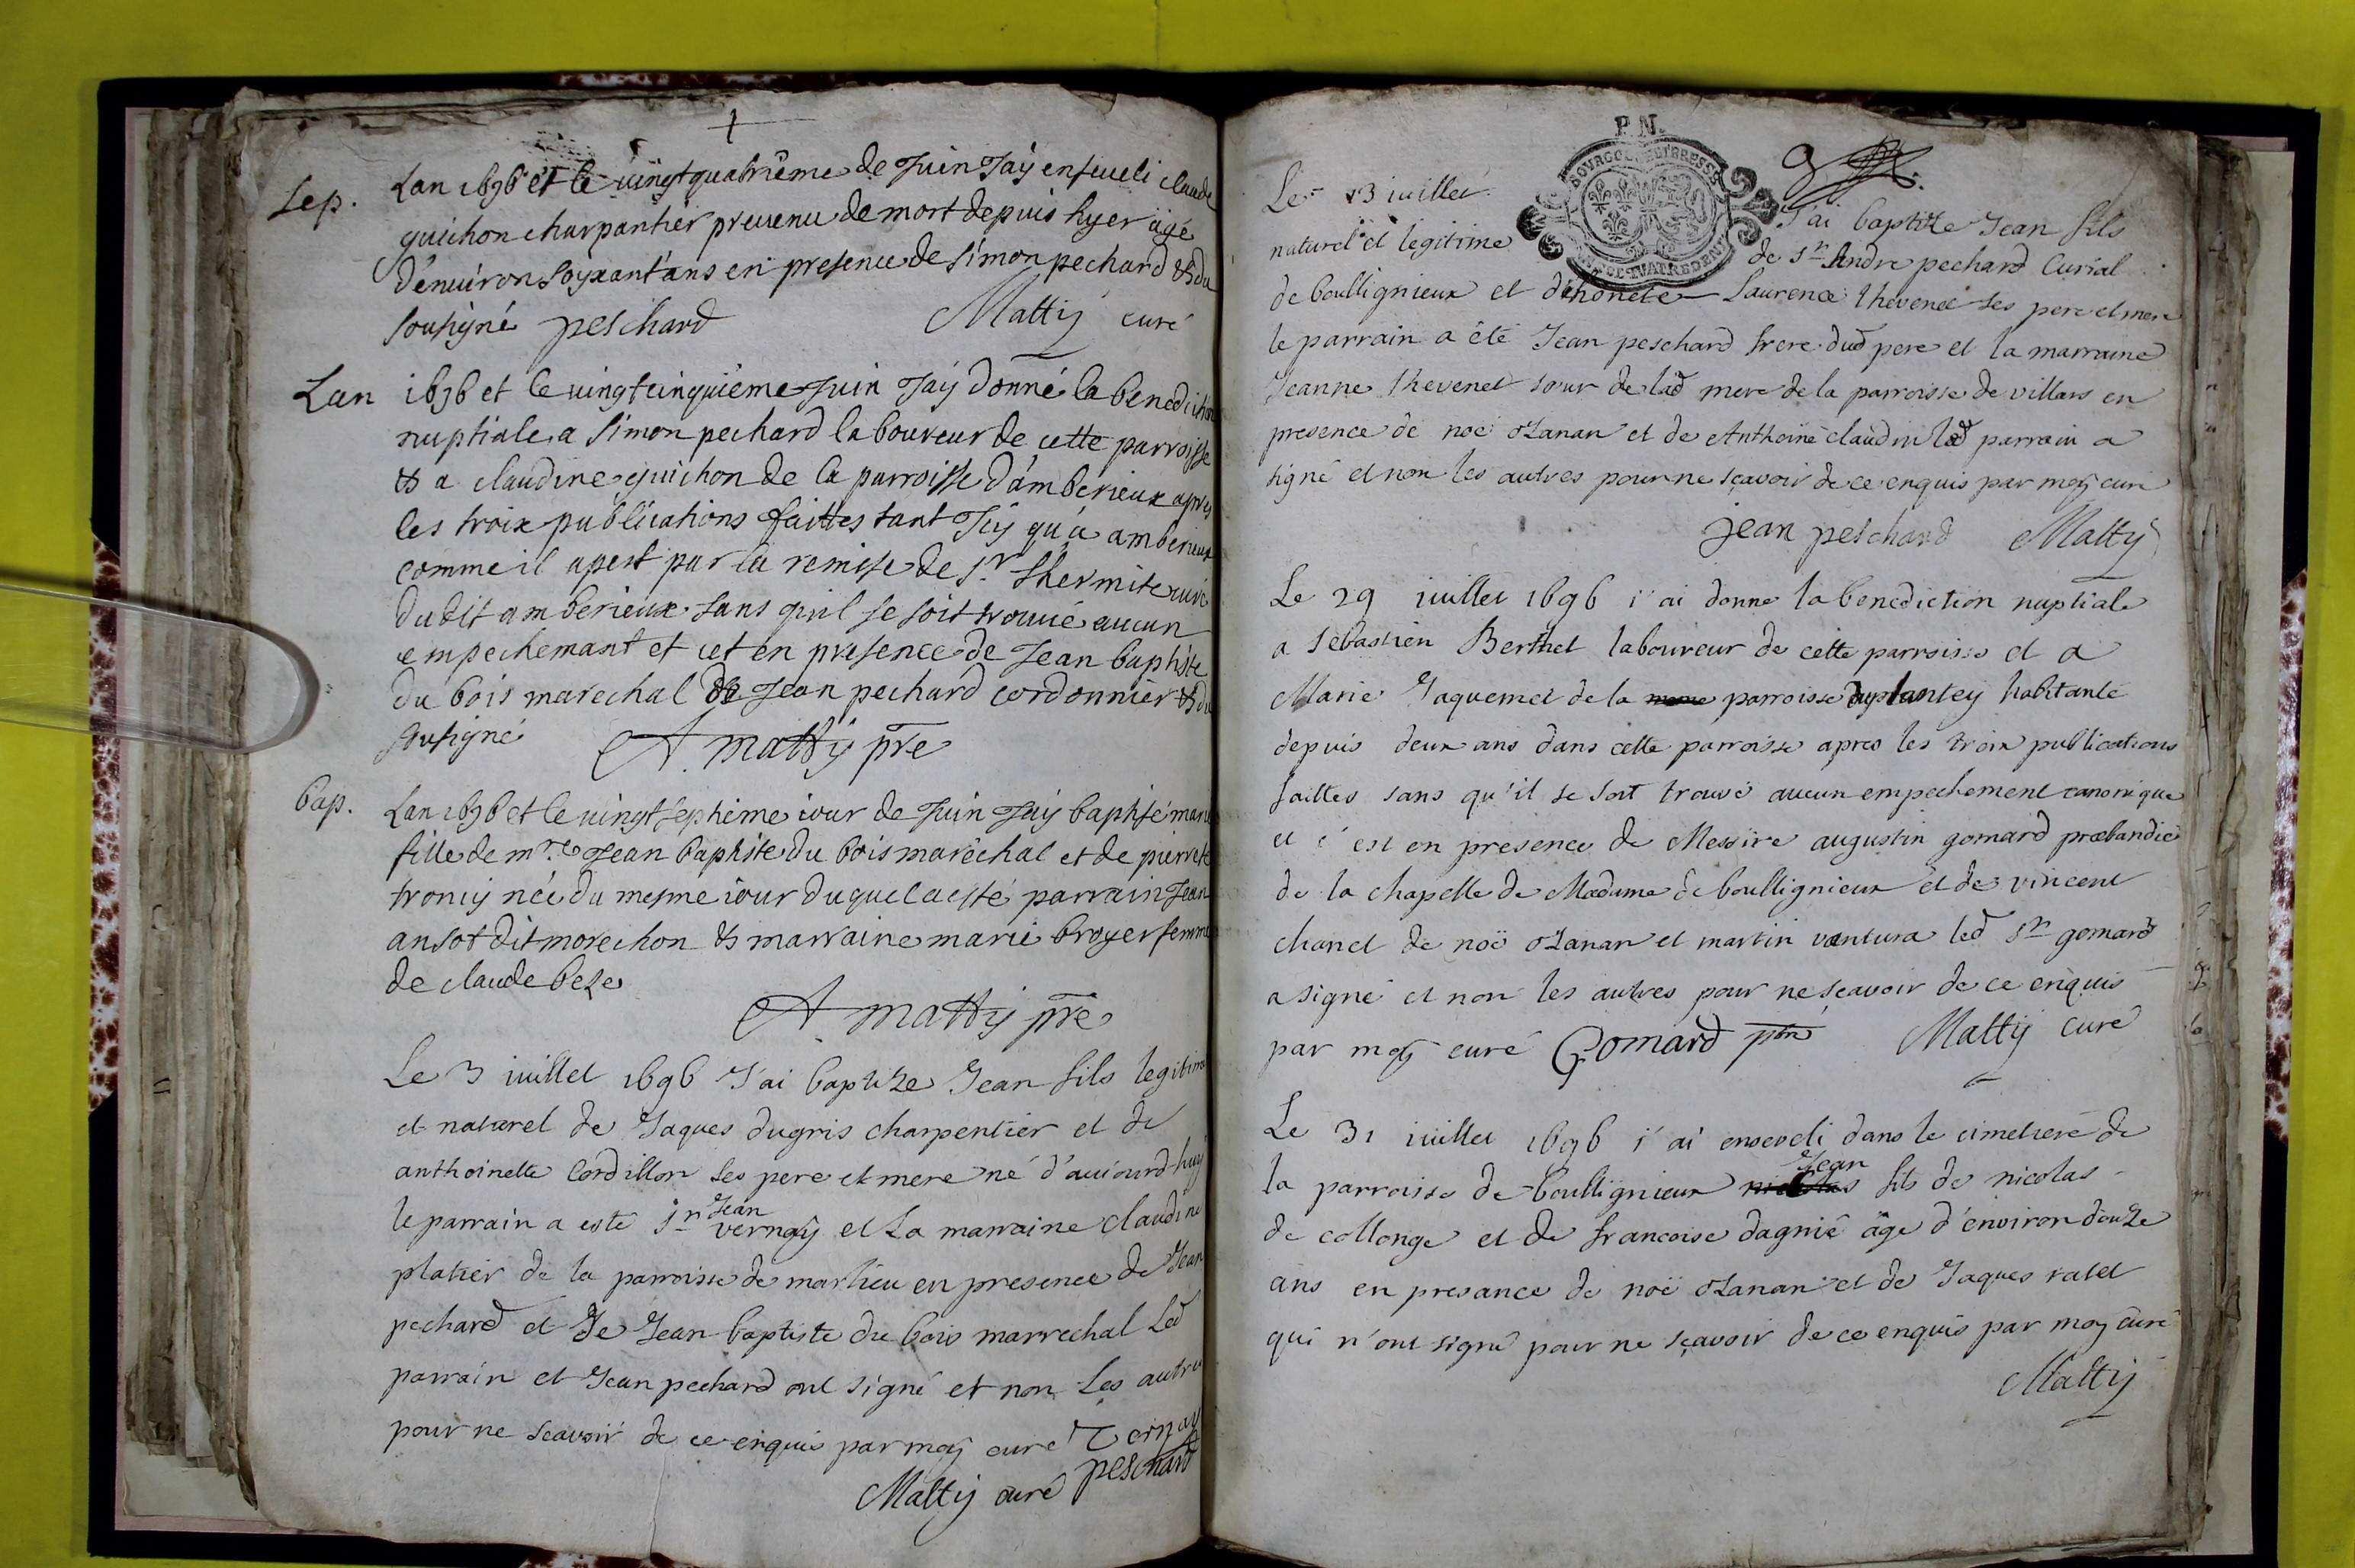 Sep. Lan 1696 et le vingt quatrième de Juin Jaÿ enseueli claude
guichon charpantier preuenu de mort depuis hyer agé
d'enuiron soyxant'ans en presence de simon pechard & du
sousigné peschard Mattij curé
Lan 1696 et le uingtcinquiéme Juin Jaÿ donné la benediction
nuptiale a simon pechard laboureur de cette parroisse
& a claudine guichon de la parroisse d'amberieux apres
les troix publications faittes tant Jcÿ qu'a amberieux
comme il apert par la remise de Sr. Lhermite curé
dudit amberieux sans quil se soit trouué aucun
empechemant et cet en presence de Jean baptiste
du bois marechal de Jean pechard cordonnier & du
sousigné A. mattÿ pre
bap. Lan 1696 et le uingt septieme iour de Juin Jaÿ baptisé marie
fille de mre Jean baptiste du bois maréchal et de pierrete
troncy née du mesme iour duquel a esté parrain Jean
ansot dit morechon & marraine marie broyer femme
de claude beze
A. mattÿ pre
Le 3 iuillet 1696 J'ai baptize Jean fils legitime
et naturel de Jaques dugris charpentier et de
anthoinette Cordillon ses pere et mere né d'auiourd'huÿ
Jean
le parrain a esté sr vernaÿ et La marraine claudine
platier de la parroisse de marlieu en presence de Jean
pechard et de Jean baptiste du bois marrechal Led
parrain et Jean pechard ont signé et non Les autres
pour ne scavoir de ce enquis par moÿ curé Vernay
Mattij curé peschard
P. N.
BOURGOG. ET BRESSE
Le 13 iuillet J'ai baptize Jean fils
naturel et legitime de Sr Andre pechard Curial
de boullignieux et d'honete Laurence thevenet ses pere et mere
le parrain a été Jean peschard frere dud pere et la marraine
Jeanne thevenet sœur de lad mere de la parroisse de villars en
presence de noë ozanan et de Anthoine claudin led parrain a
signé et non les autres pour ne sçavoir de ce enquis par moÿ curé
jean peschard Mattij
Le 29 iuillet 1696 i'ai donne la benediction nuptiale
a sebastien Berthet laboureur de cette parroisse et a
Marie Jaquemet de la parroisse duplantey habitante
depuis deux ans dans cette parroisse apres les troix publications
faittes sans qu'il se soit trouvé aucun empechement canonique
et c'est en presence de Messire augustin gomard præbandié
de la chapelle de Madame de boullignieux et de vincent
chanet de noë ozanan et martin vantura led Sr gomard
a signé et non les autres pour ne scavoir de ce enquis
par moÿ curé Gomard ptre Mattij curé
Le 31 iuillet 1696 i'ai enseveli dans le cimetiere de
Jean
la parroisse de boullignieux nicolas fils de nicolas
de collonge et de francoise dagnié âge d'environ douze
ans en presance de noë ozanan et de Jaques ratet
qui n'ont signé pour ne sçavoir de ce enquis par moy curé
Mattij